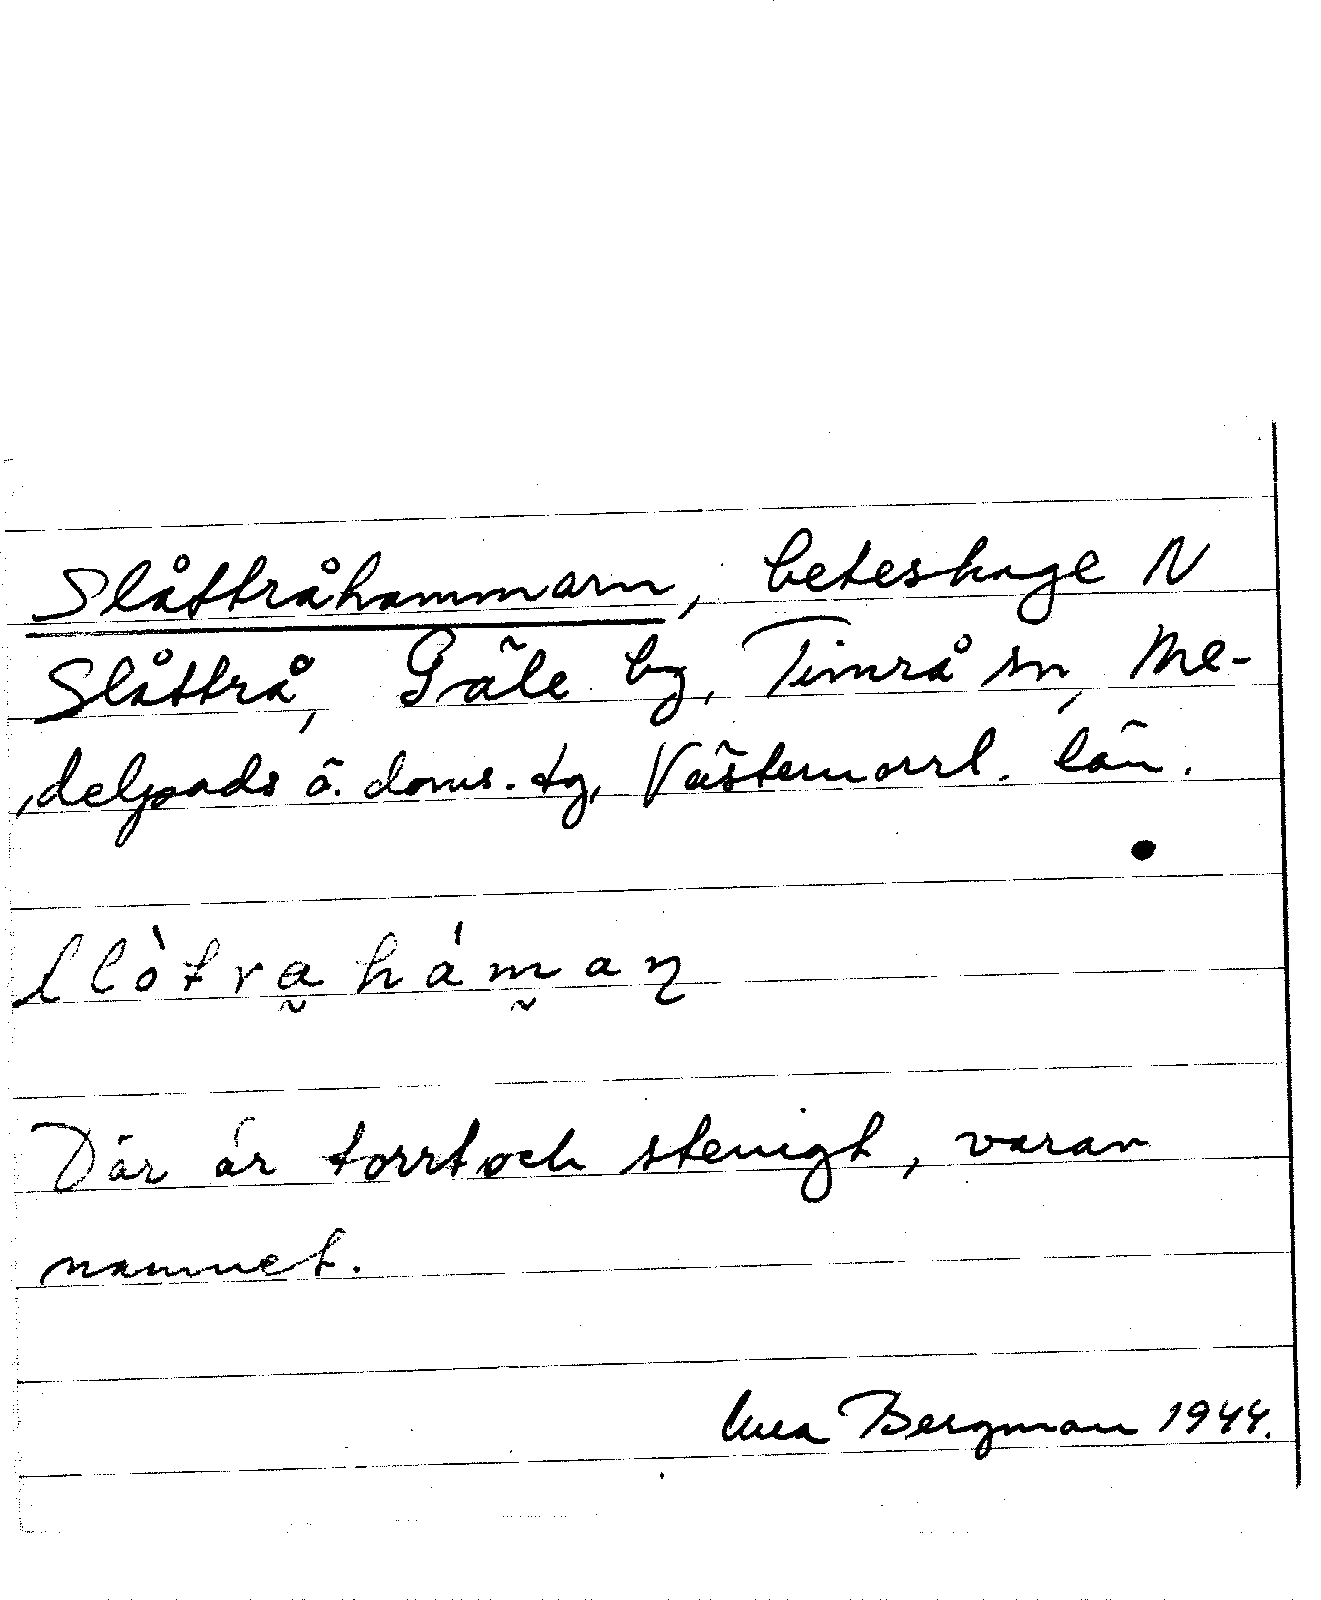 Slåttråhammarn, beteshage N
Slåttrå, Gäle by, Timrå sn, Me-
delpads ö. doms. tg, Västernorrl. län.
slòtra̰hám̰aɳ
Där är torrt och stenigt, varav
namnet.
Bergman 1944.